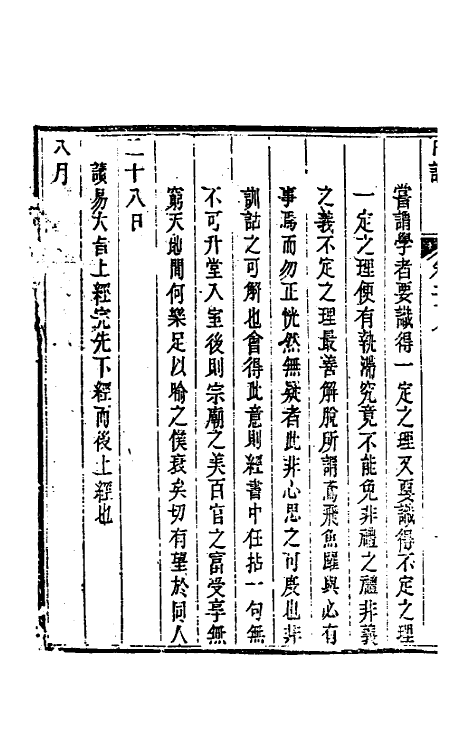 嘗謂學者要識得一定之理又要識得不定之理
一定之理便有執滯究竟不能免非禮之禮非義
之義不定之理最善解脫所謂鳶飛魚躍與必有
事焉而勿正恍然無疑者此非心思之可度也非
訓詁之可解也會得此意則經書中任拈一句無
不可升堂入室後則宗廟之美百官之富受享無
窮天地間何樂足以喻之僕衰矣切有望於同人
二十八日
讀易大旨上經完先下經而後上經也
八月